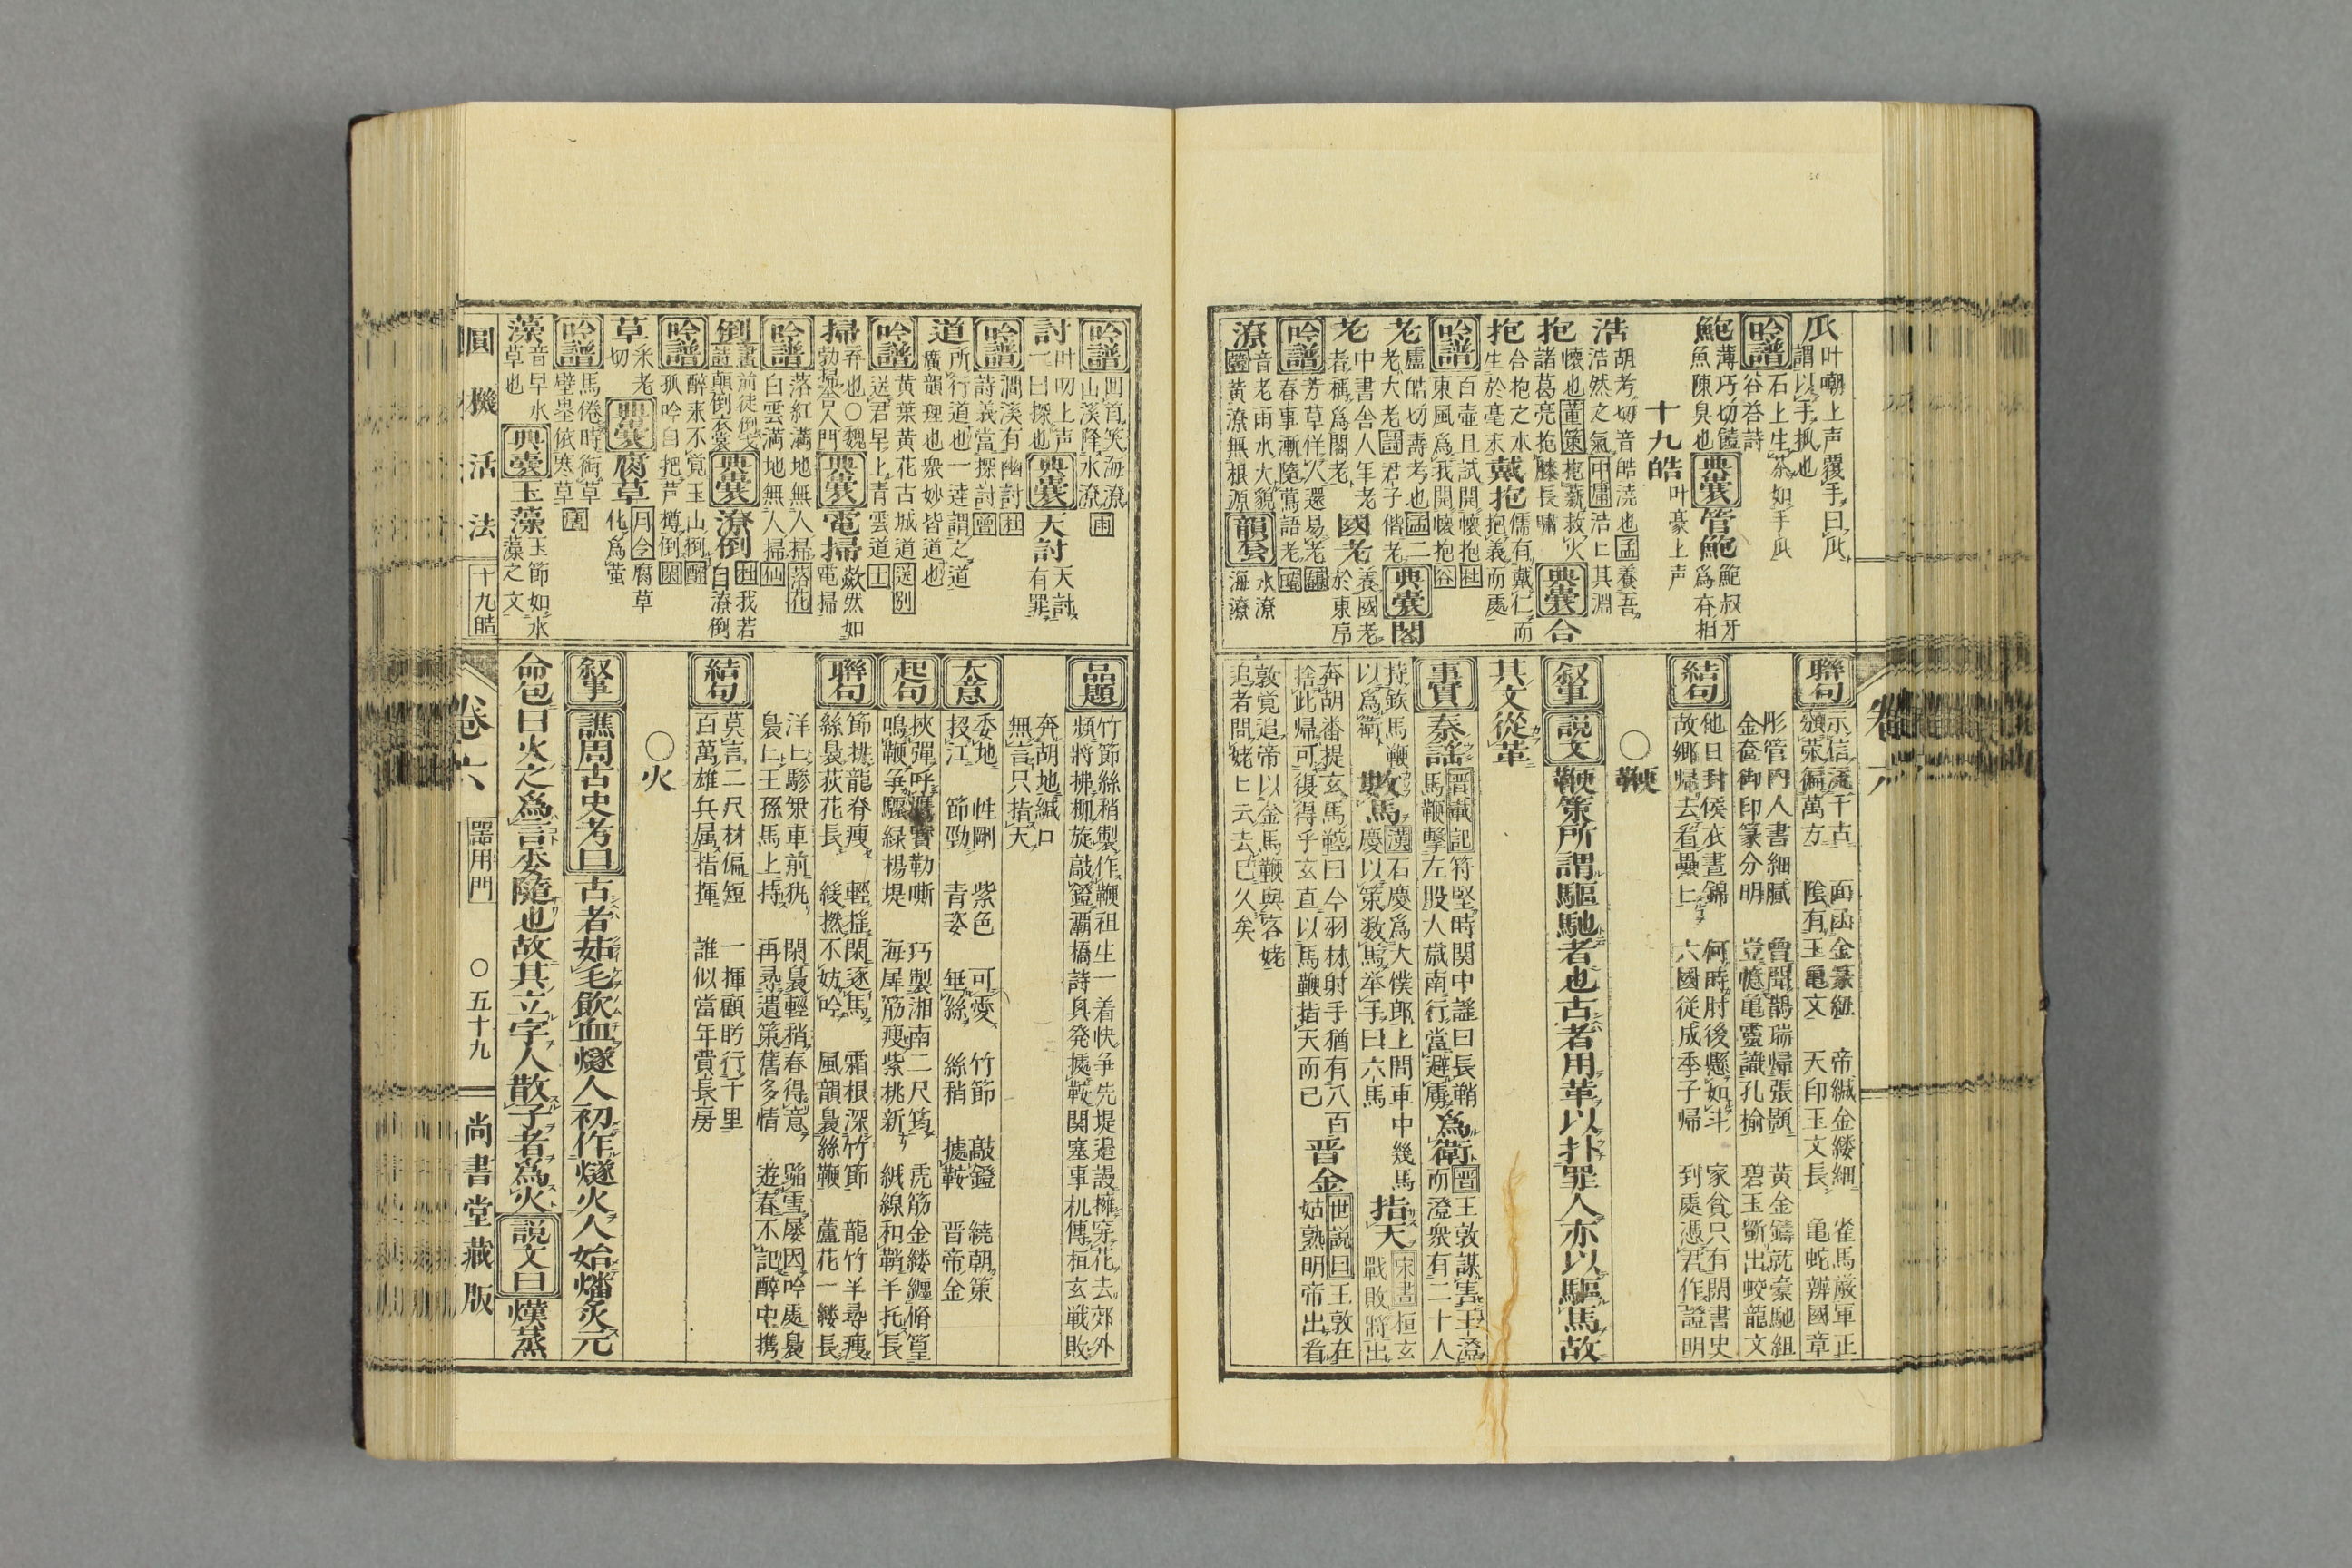 爪 叶嘲上声覆手曰爪
謂以手抓也
吟譜 石上生茶如手爪
谷荅詩
鮑 薄巧切饐
魚陳臭也
典囊 管鮑 鮑叔牙
為斉相
十九皓 叶豪上声
浩 胡考切音皓澆也孟養吾
浩然之氣中庸浩匕其淵
抱 懷也董策抱薪救火
諸葛亮抱膝長嘯
典囊 合
抱 合抱之木
生於毫末
戴抱 儒有戴仁而
抱義而處
吟譜 百壷且試開懷抱杜
東風為我開懷抱谷
老 盧皓切壽考也孟二
老大老詩君子偕老
典囊 閣
老 中書舎人年老
者稱為閣老
國老 養國老
於東序
吟譜 芳草伴人還易老
春事漸隨鶯語老
潦 音老雨水大貌
黄潦無根源
韻套 水潦
海潦
聯句 示信流千古 面函金篆紐 帝緘金縷細 雀馬嚴軍正
頒榮徧萬方 陰有玉亀文 天印玉文長 亀蛇辨國章
彤管内人書細膩 曾聞鵲瑞帰張顥 黄金鑄就豪馳組
金奩御印篆分明 豈憶亀靈識孔愉 碧玉斵出蛟龍文
結句 他日封侯衣晝錦 何時肘後懸如斗 家貧只有閑書史
故郷帰去看疊匕 六國従成季子帰 到處憑君作證明
〇鞭
叙事 説文 鞭策所謂驅馳者也古者用革以扑罪人亦以驅馬故
其文從革
事實 秦謡 晋載記 苻堅時関中謡曰長鞘
馬鞭撃左股大歳南行當避虜
為衛 晋王敦謀害王澄
而澄衆有二十人
持鉄馬鞭
以為衛
數馬 漢石慶為太僕郎上問車中幾馬
慶以策数馬挙手曰六馬
指天 宋書桓玄
戰敗將出
奔胡畨提玄馬鞚曰今羽林射手猶有八百
捨此帰可復得乎玄直以馬鞭指天而已
晋金 世説曰王敦在
姑孰明帝出看
敦覚追帝以金馬鞭與客姥
追者問姥匕云去已久矣
吟譜 凹首笑海潦
山溪降水潦甫
討 叶叨上声
一曰探也
典囊 天討 天討
有罪
吟譜 澗溪有幽討杜
詩義當探討
道 所行道也一達謂之道
廣韻理也衆妙皆道也
吟譜 黄葉黄花古城道送別
送君早上青雲道士
掃 弃也〇魏
勃掃舎人門
典囊 電掃 歘然如
電掃
吟譜 落紅満地無人掃落花
白雲満地無人掃仙
倒 書前徒倒戈
詩顛倒衣裳
典囊 潦倒 杜我若
自潦倒
吟譜 醉来不覚玉山倒
孤吟自把芦樽倒
草 采老
切
典囊 腐草 月令腐草
化為螢
吟譜 馬倦時銜草
壁蛩依寒草
藻 音早水
草也
典囊 玉藻 玉節如水
藻之文
圓機活法 十九皓
品題 竹節絲稍製作鞭祖生一着快争先堤邉謾擁穿花去郊外
頻將拂柳旋敲鐙灞橋詩具発據鞍関塞事机傳桓玄戦敗
奔胡地緘口
無言只指天
大意 委地 性剛 紫色 可愛 竹節 敲鐙 繞朝策
投江 節勁 青姿 垂絲 絲稍 據鞍 晋帝金
起句 挾彈呼鷹寳勒嘶 巧製湘南二尺筠 虎筋金縷纏脩篁
鳴鞭争驟緑楊堤 海犀筋痩紫桃新 絨線和鞘半托長
聯句 節排龍脊痩 軽揺閑逐馬 霜根深竹節 龍竹半尋痩
絲裊荻花長 綏撚不妨吟 風韻裊絲鞭 蘆花一縷長
洋匕驂桀車前犹 閑裊軽稍春得意 踏雪屡因吟處裊
裊匕王孫馬上持 再尋遺策舊多情 遊春不記醉中携
結句 莫言二尺材偏短 一揮顧眄行千里
百萬雄兵属指揮 誰似當年費長房
〇火
叙事 譙周古史考曰 古者茹毛飲血燧人初作燧火人始燔炙元
命包曰火之為言委隨也故其立字人散子者為火説文曰燬蒸
卷六 器用門 〇五十九 尚書堂藏版